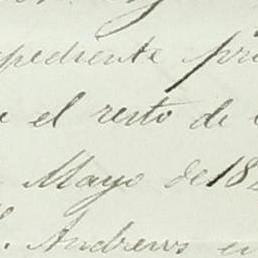 pediente pri
e el resto de
Mayo de 18
Andrews en